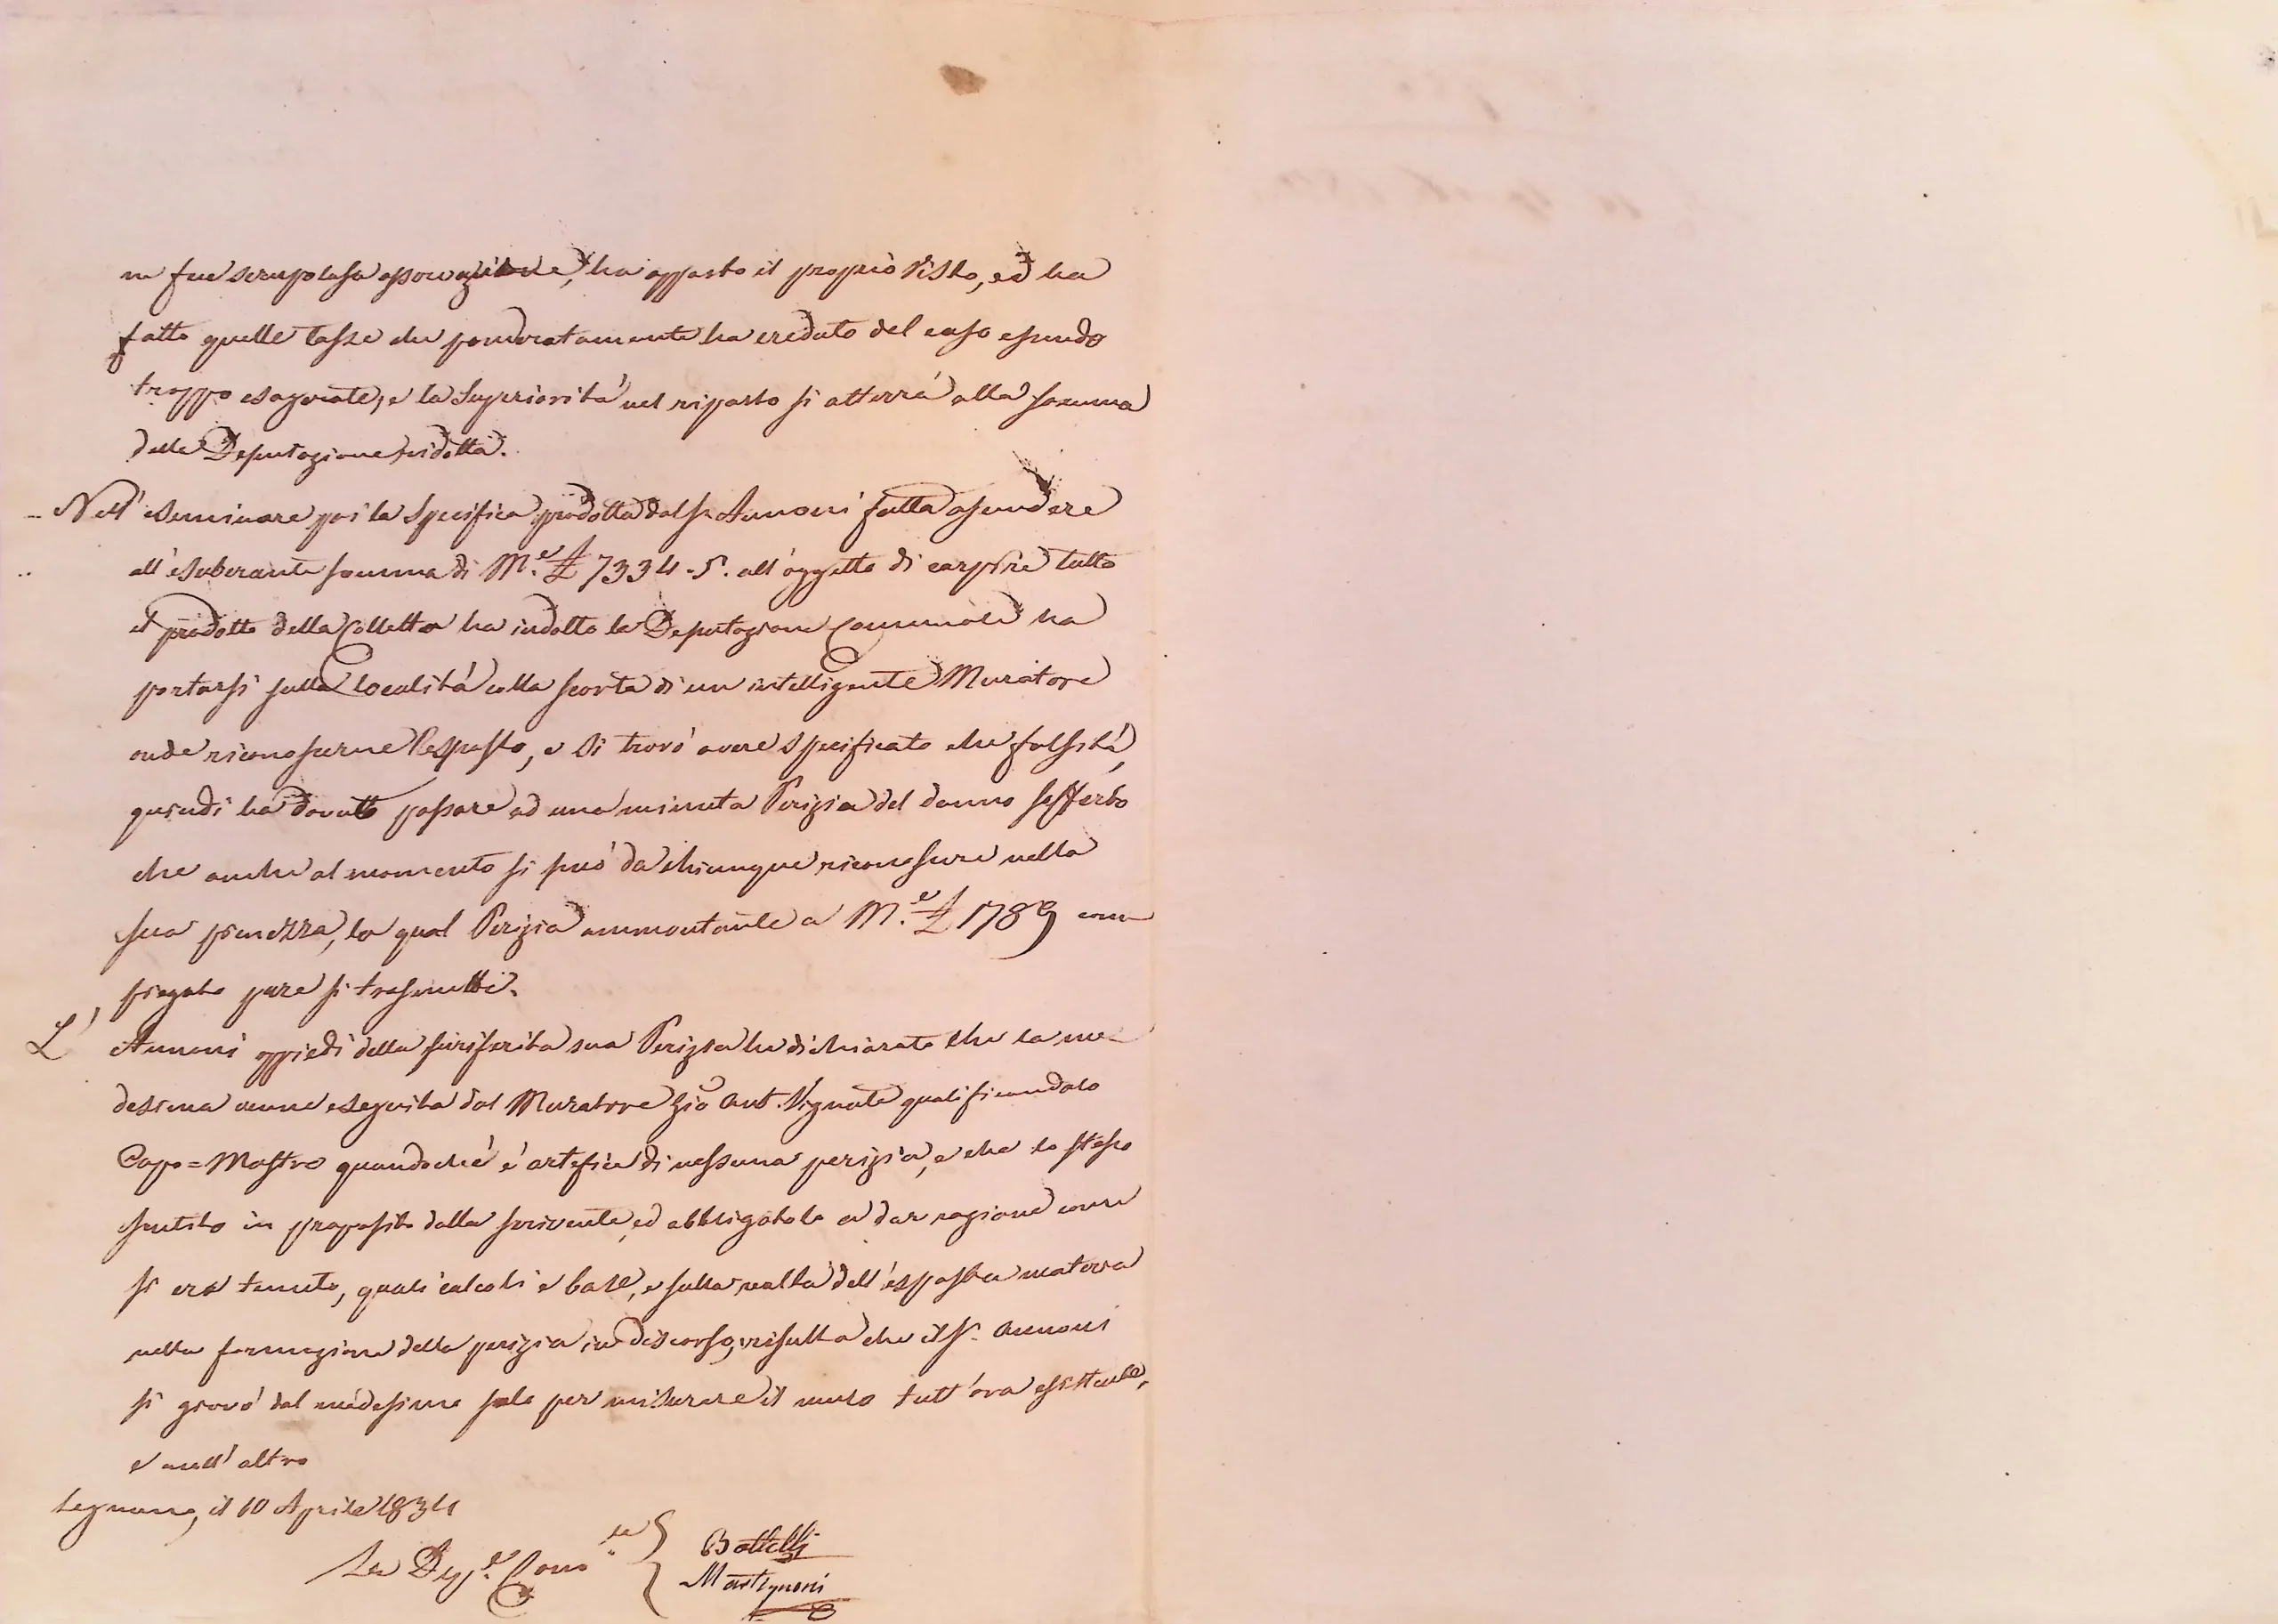 sua scrupolosa ha apposto il proprio Visto, ed ha
fatto quelle tasse che ponderatamente ha creduto del caso essendo
troppo esagerate, e la Superiorità nel riparto si atterrà alla somma
dalla Deputazione ridotta.
Nell'esaminare poi la Specifica prodotta dal Sr. Annoni fatta ascendere
all'esuberante somma di M.e £ 7334.5. all'oggetto di carpire tutto
il prodotto della Colletta ha indotto la Deputazione Comunale ha
portarsi sulla località colla scorta di un intelligente Muratore
onde riconoscerne l'esposto, e si trovò avere specificato che falsità,
quindi ha dovuto passare ad una minuta Perizia del danno sofferto
che anche al momento si può da chiunque riconoscere nella
sua pienezza, la qual Perizia ammontante a M.e £ 1789 com
piegato pure si trasmette.
L'Annoni appiedi della suriferita sua Perizia ha dichiarato che la me=
desima venne eseguita dal Muratore Gio Ant. Vignate qualificandolo
Capo=Mastro quandochè è artefice di nessuna perizia, e che lo stesso
sentito in proposito dalla scrivente, ed obbligatolo a dar ragione come
si era tenuto, quali calcoli e base, e sulla realtà dell'esposta materia
nella formazione della perizia in discorso, risulta che il Sr. Annoni
si giovò dal medesimo solo per misurare il muro tutt'ora esistente,
e null'altro
Legnano, il 10 Aprile 1834
La Dep.e Com.le
Bottelli
Martignoni